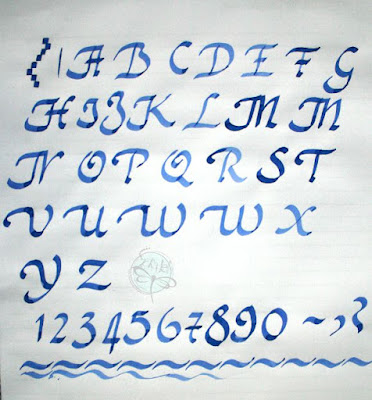 A B C D E F G
H I J K L M M
N O P Q R S T
V U W W X
Y Z
1 2 3 4 5 6 7 8 9 0 ~ , ?